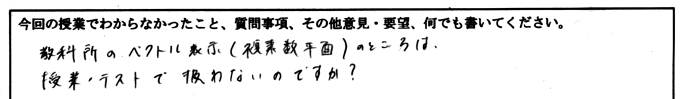 今回の授業でわからなかったこと、質問事項、その他意見・要望、何でも書いてください。
教科所のベクトル表示(複素数平面)のところは、
授業・テストで扱わないのですか?